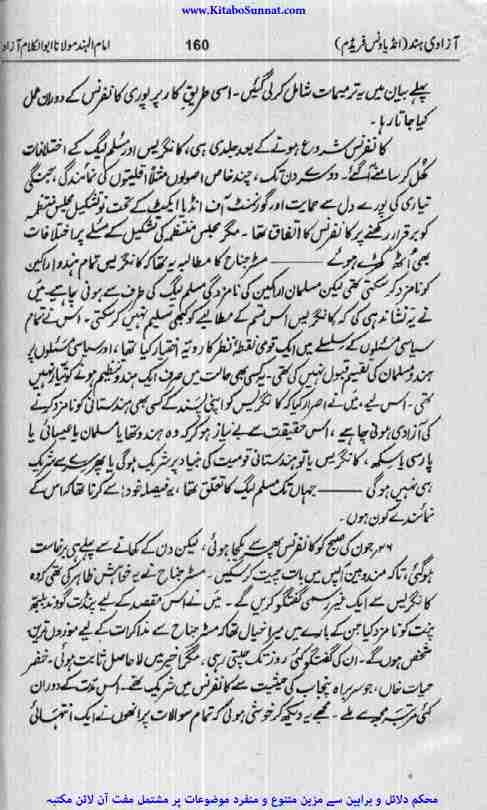 www.KitaboSunnat.com
آزادی ہند (انڈیا ونس فریڈم)
160
امام الہند مولانا ابوالکلام آزاد
پہلے بیان میں یہ ترمیمات شامل کرلی گئیں۔ اسی طریقِ کار پر پوری کانفرنس کے دوران عمل
کیا جاتا رہا۔
کانفرنس شروع ہونے کے بعد جلدی ہی، کانگریس اور مسلم لیگ کے اختلافات
کھُل کر سامنے آگئے۔ دوسرے دن تک، چند خاص اصولوں مثلاً اقلیتوں کی نمائندگی، جنگی
تیاری کی پورے دل سے حمایت اور گورنمنٹ آف انڈیا ایکٹ کے تحت نو تشکیل مجلس منتظمہ
کو برقرار رکھنے پر کانفرنس کا اتفاق تھا۔ مگر مجلس منتظمہ کی تشکیل کے مسئلے پر اختلافات
بھی اُٹھ کھڑے ہوئے ——— مسٹر جناح کا مطالبہ یہ تھا کہ کانگریس تمام ہندو اراکین
کو نامزد کرسکتی تھی لیکن مسلمان اراکین کی نامزدگی مسلم لیگ کی طرف سے ہونی چاہیے۔ میں
نے یہ نشاندہی کی کہ کانگریس اس قسم کے مطالبے کو کبھی تسلیم نہیں کرسکتی۔ اس نے تمام
سیاسی مسئلوں کے سلسلے میں ایک قومی نقطۂ نظر کا رویّہ اختیار کیا تھا، اور سیاسی مسئلوں پر
ہندو مسلمان کی تقسیم قبول نہیں کی تھی۔ یہ کسی بھی حالت میں صرف ایک ہندو تنظیم ہونے کو تیار نہیں
تھی۔ اس لیے، میں نے اصرار کیا کہ کانگریس کو اپنی پسند کے کسی بھی ہندستانی کو نامزد کرنے
کی آزادی ہونی چاہیے، اس حقیقت سے بے نیاز ہو کر کہ وہ ہندو تھا یا مسلمان یا عیسائی یا
پارسی یا سکھ۔ کانگریس یا تو ہندستانی قومیت کی بنیاد پر شریک ہوگی یا پھر سرے سے شریک
ہی نہیں ہوگی ——— جہاں تک مسلم لیگ کا تعلق تھا، یہ فیصلہ خود اسے کرنا تھا کہ اس کے
نمائندے کون ہوں۔
۲۶ جون کی صبح کو کانفرنس پھر سے یکجا ہوئی، لیکن دن کے کھانے سے پہلے ہی برخاست
ہوگئی، تاکہ مندوبین آپس میں بات چیت کرسکیں۔ مسٹر جناح نے یہ خواہش ظاہر کی تھی کہ وہ
کانگریس سے ایک غیر رسمی گفتگو کریں گے۔ میں نے اس مقصد کے لیے پنڈت گووند بلبھ
پنت کو نامزد کیا جن کے بارے میں میرا خیال تھا کہ مسٹر جناح سے مذاکرات کے لیے موزوں ترین
شخص ہوں گے۔ ان کی گفتگو کئی روز تک چلتی رہی، مگر اخیر میں لاحاصل ثابت ہوئی۔ خضر
حیات خاں، جو سربراہِ پنجاب کی حیثیت سے کانفرنس میں شریک تھے۔ اس مدّت کے دوران
کئی مرتبہ مجھ سے ملے۔ مجھے یہ دیکھ کر خوشی ہوئی کہ تمام سوالات پر انھوں نے ایک انتہائی
محکم دلائل و براہین سے مزین متنوع و منفرد موضوعات پر مشتمل مفت آن لائن مکتبہ